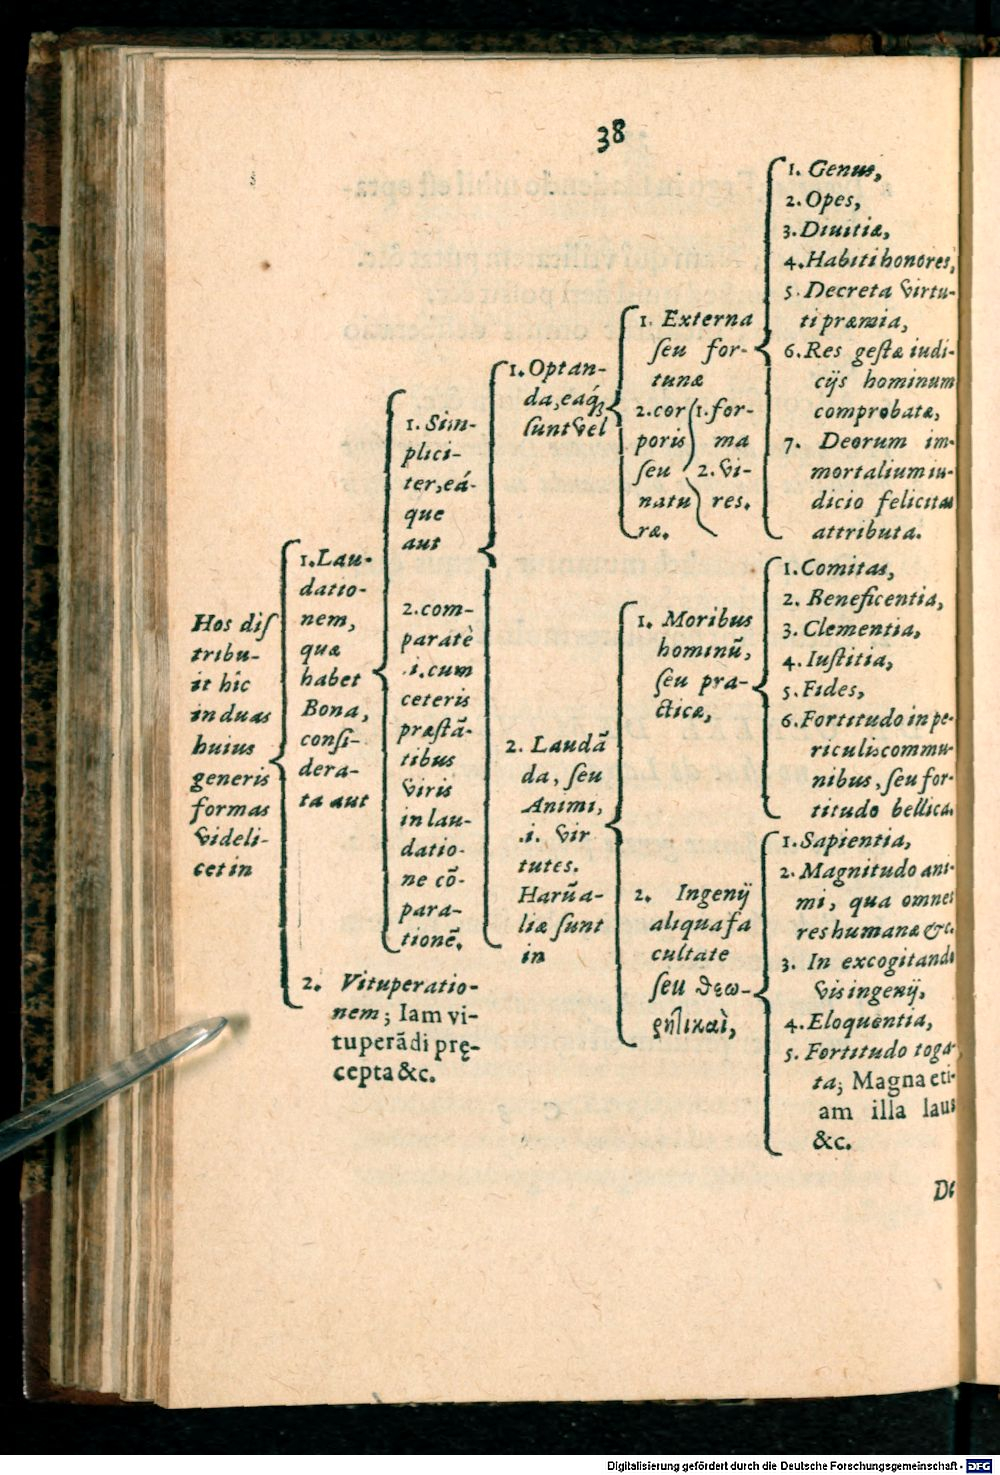 38
Hos diſ
tribu-
it hîc
in duas
huius
generis
formas
videli-
cet in
1. Lau-
datio-
nem,
quæ
habet
Bona,
conſi-
dera-
ta aut
1. Sim-
plici-
ter, eá-
que
aut
1. Optan-
da, eaq́;
ſunt vel
1. Externa
ſeu for-
tunæ
1. Genus,
2. Opes,
3. Diuitiæ,
4. Habiti honores,
5. Decreta virtu-
ti præmia,
6. Res geſtæ iudi-
cijs hominum
comprobatæ,
7. Deorum im-
mortalium iu-
dicio felicitas
attributa.
2. cor
poris
ſeu
natu
ræ.
1. for-
ma
2. vi-
res.
2. Laudā
da, ſeu
Animi,
.i. vir
tutes.
Harū a-
liæ ſunt
in
1. Moribus
hominū,
ſeu pra-
cticæ,
1. Comitas,
2. Beneficentia,
3. Clementia,
4. Iuſtitia,
5. Fides,
6. Fortitudo in pe-
riculis commu-
nibus, ſeu for-
titudo bellica.
2. Ingenij
aliqua fa
cultate
ſeu θεω-
ρητικαὶ,
1. Sapientia,
2. Magnitudo ani-
mi, qua omnes
res humanæ &c.
3. In excogitando
vis ingenij,
4. Eloquentia,
5. Fortitudo toga-
ta; Magna eti-
am illa laus
&c.
2. com-
paratè
.i. cum
ceteris
præſtā-
tibus
viris
in lau-
datio-
ne cō-
para-
tionē.
2. Vituperatio-
nem; Iam vi-
tuperādi pręcepta &c.
De
Digitalisierung gefördert durch die Deutsche Forschungsgemeinschaft - DFG